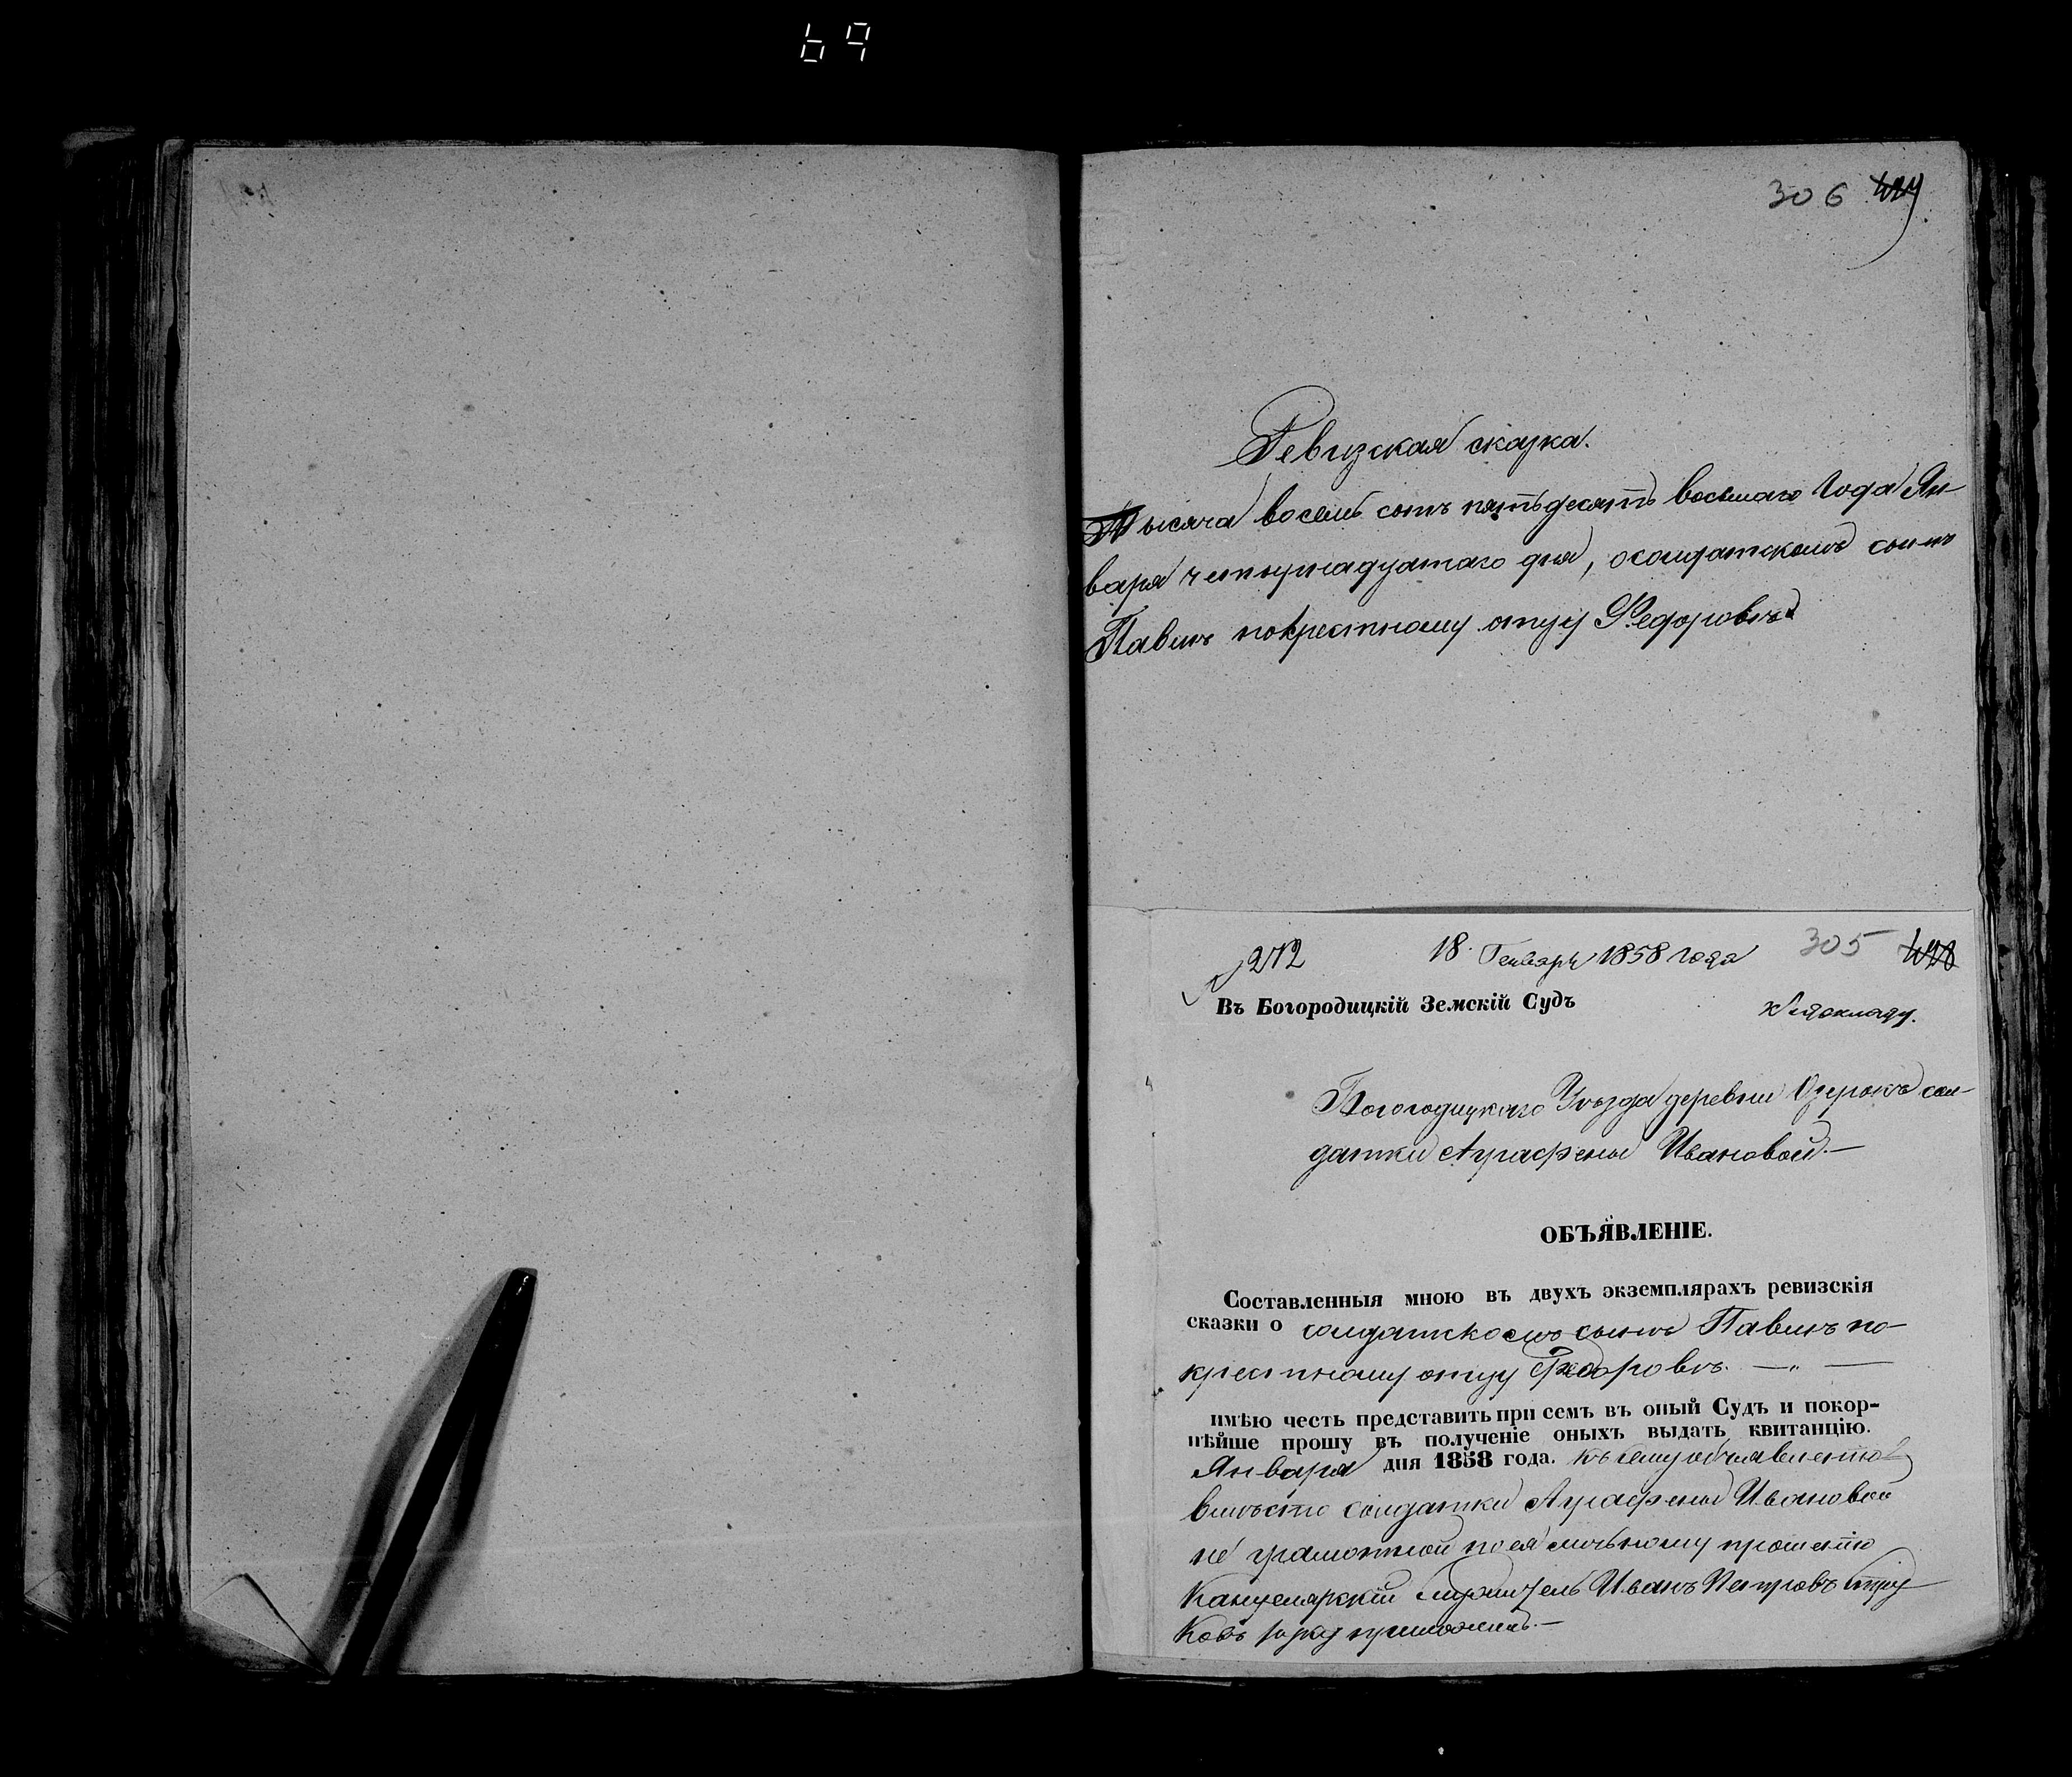 69
306 429
Ревизская сказка.
Тысяча восемь сотъ пятьдесятъ восьмаго Года Ян-
варя четырнадцатаго дня, о солдатскомъ сынѣ
Павлѣ по крестному отцу Федоровѣ
272 18 Генваря 1858 года 305 428
Въ Богородицкій Земскій Судъ
К докладу.
Богородицкаго Уѣзда деревни Озерокъ сол-
датки Аграфены Ивановой.—
ОБЪЯВЛЕНІЕ.
Составленныя мною въ двухъ экземплярахъ ревизскія
сказки о солдатскомъ сынѣ Павлѣ по
крестному отцу Федоровѣ. — „ —
имѣю честь представить при семъ въ оный Судъ и покор-
нѣйше прошу въ полученіе оныхъ выдать квитанцію.
Января дня 1858 года. Къ сему объявленію
вмѣсто солдатки Аграфены Ивановой
не грамотной по ея личьному прошенію
Канцелярскій Служитель Иванъ Петровъ
руку приложилъ.—